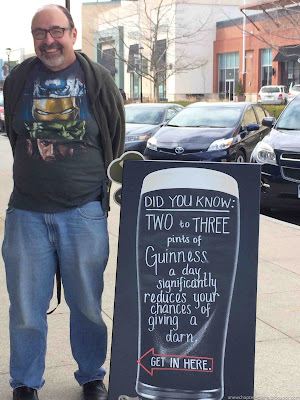 DID YOU KNOW:
TWO to THREE
pints of
Guinness
a day
significantly
reduces your
chances of
giving a
darn.
GET IN HERE.